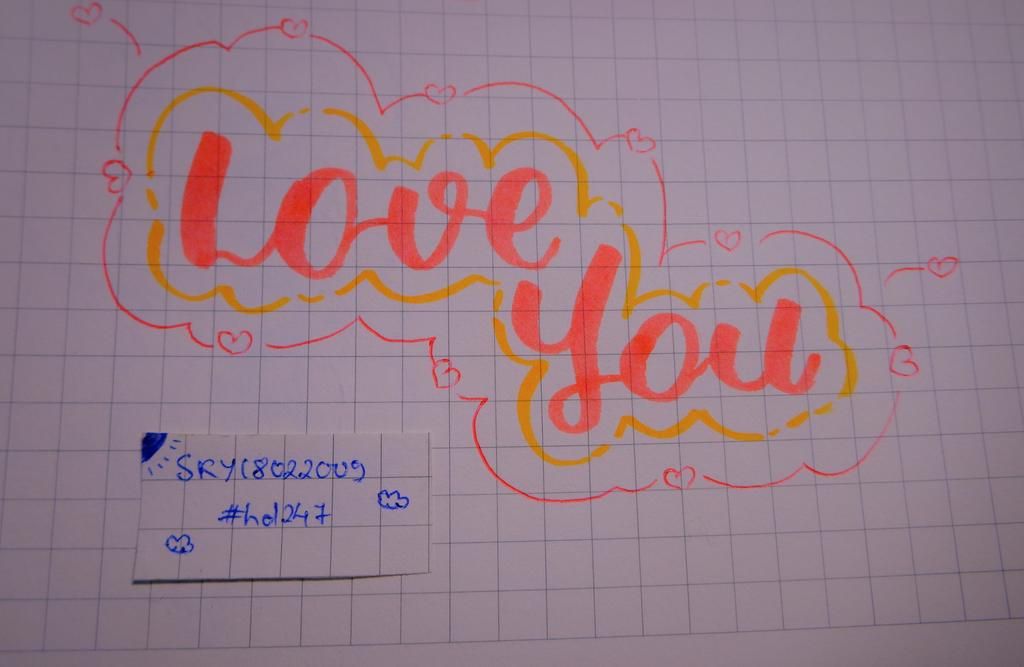 Love
You
SRY18022009
#hd247